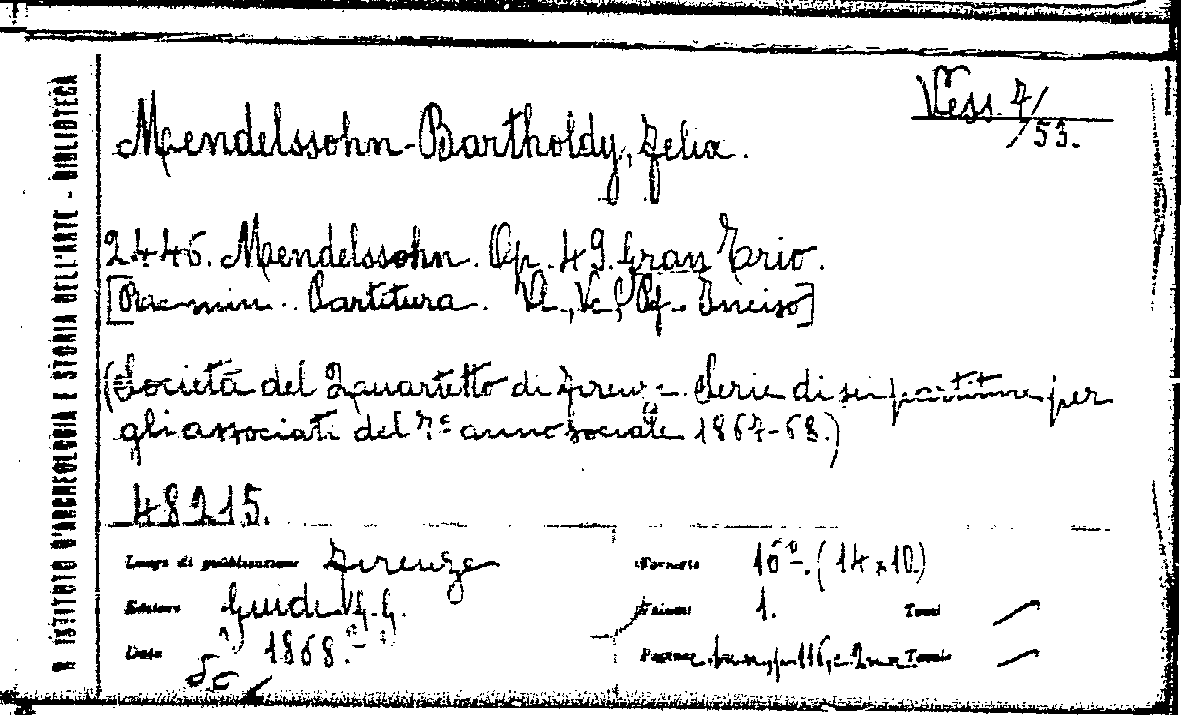 R. ISTITUTO D'ARCHEOLOGIA E STORIA DELL'ARTE - BIBLIOTECA
Vess. 7/53.
Mendelssohn-Bartholdy, Felix.
2446. Mendelssohn. Op. 49. Gran Trio.
Partitura. Vl., Vc., Pf. Inciso]
(Società del Quartetto di Firenze. Serie di sei partiture per
gli associati del 7º anno sociale 1867-68.)
48215.
Luogo di pubblicazione Firenze
Editore Guidi G. G.
Data 1868.
Formato 16º. (14 x 10)
Volumi 1. Tomi
Pagine p. 116, c. 2 Tavole